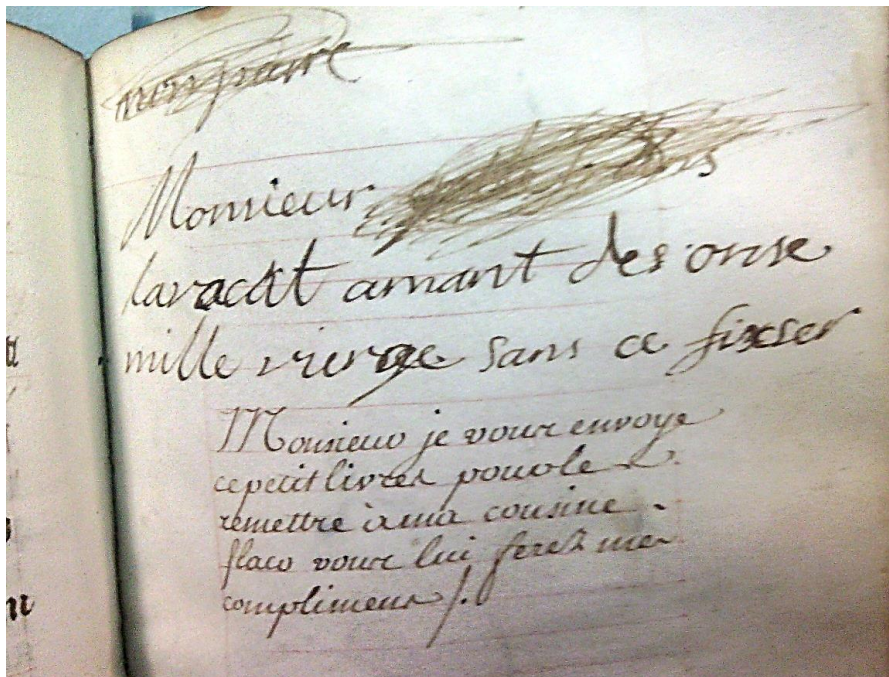 Monsieur
lavackt amant des onse
mille vierge sans ce fixser
Monsieur je vour envoye
ce petit livres pour le
remettre à ma cousine
flaco vour lui feret mes
complimens